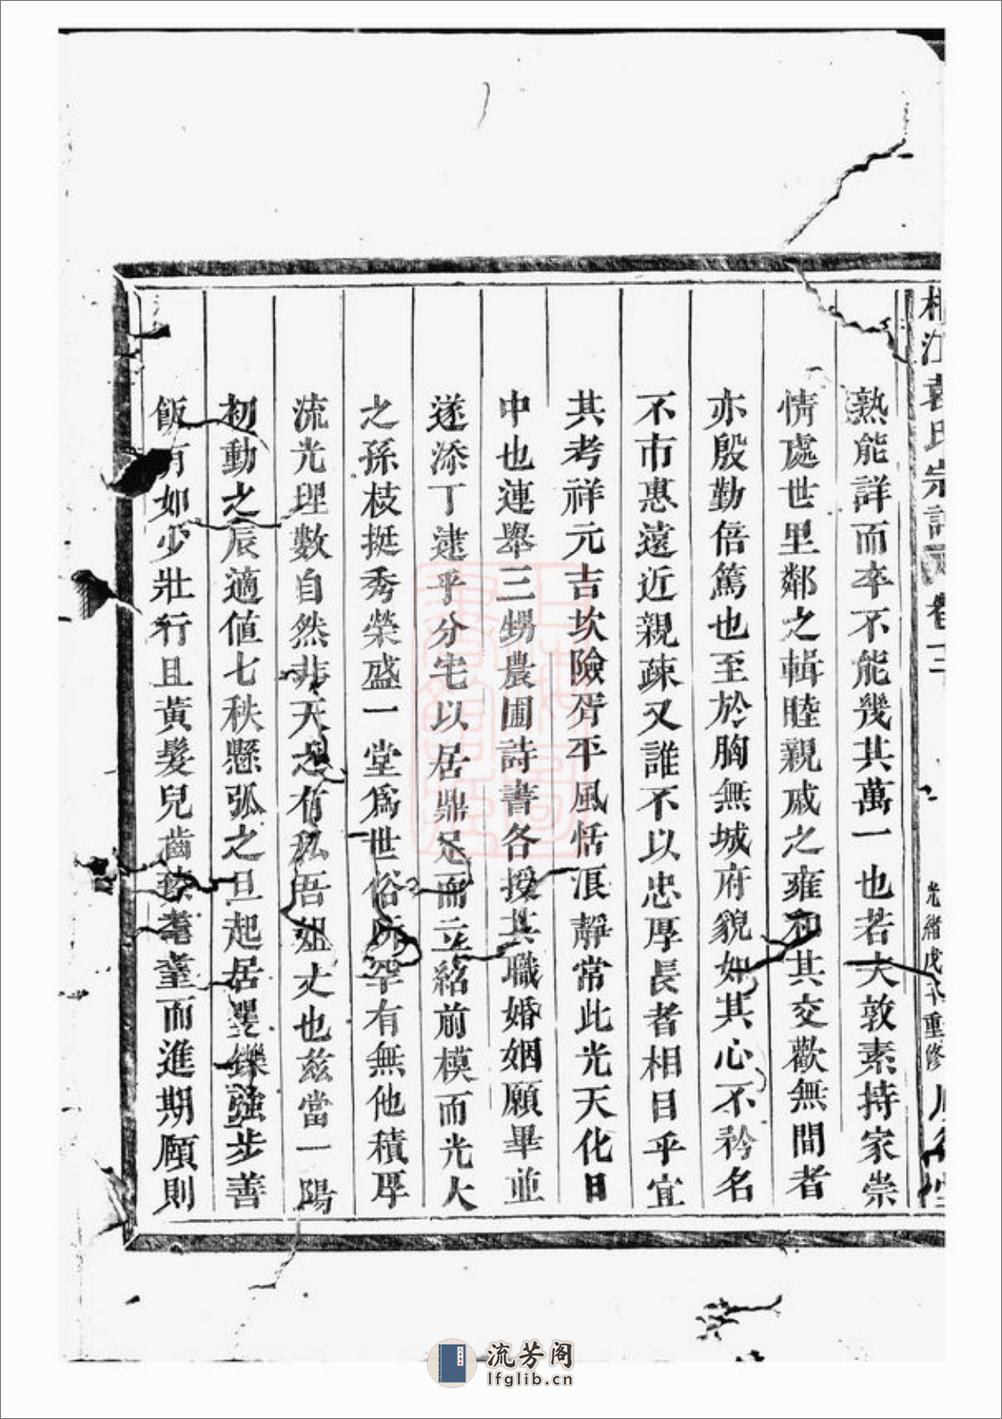 江袁氏宗譜 卷十二 光緒戊子重修
熟能詳而卒不能幾其萬一也若夫敦素持家崇
情處世里鄰之輯睦親戚之雍和其交歡無間者
亦殷勤倍篤也至於胸無城府貌如其心不矜名
不市惠遠近親疎又誰不以忠厚長者相目乎宜
其考祥元吉坎險胥平風恬浪靜常此光天化日
中也連舉三甥農圃詩書各授其職婚姻願畢並
遂添丁逮乎分宅以居鼎足而立紹前模而光大
之孫枝挺秀榮盛一堂為世俗所罕有無他積厚
流光理數自然非天之有私吾姐丈也茲當一陽
初動之辰適値七秩懸弧之旦起居矍鑠強步善
飯有如少壯行且黃髮兒齒耄耋而進期頤則
流芳阁
lfglib.cn